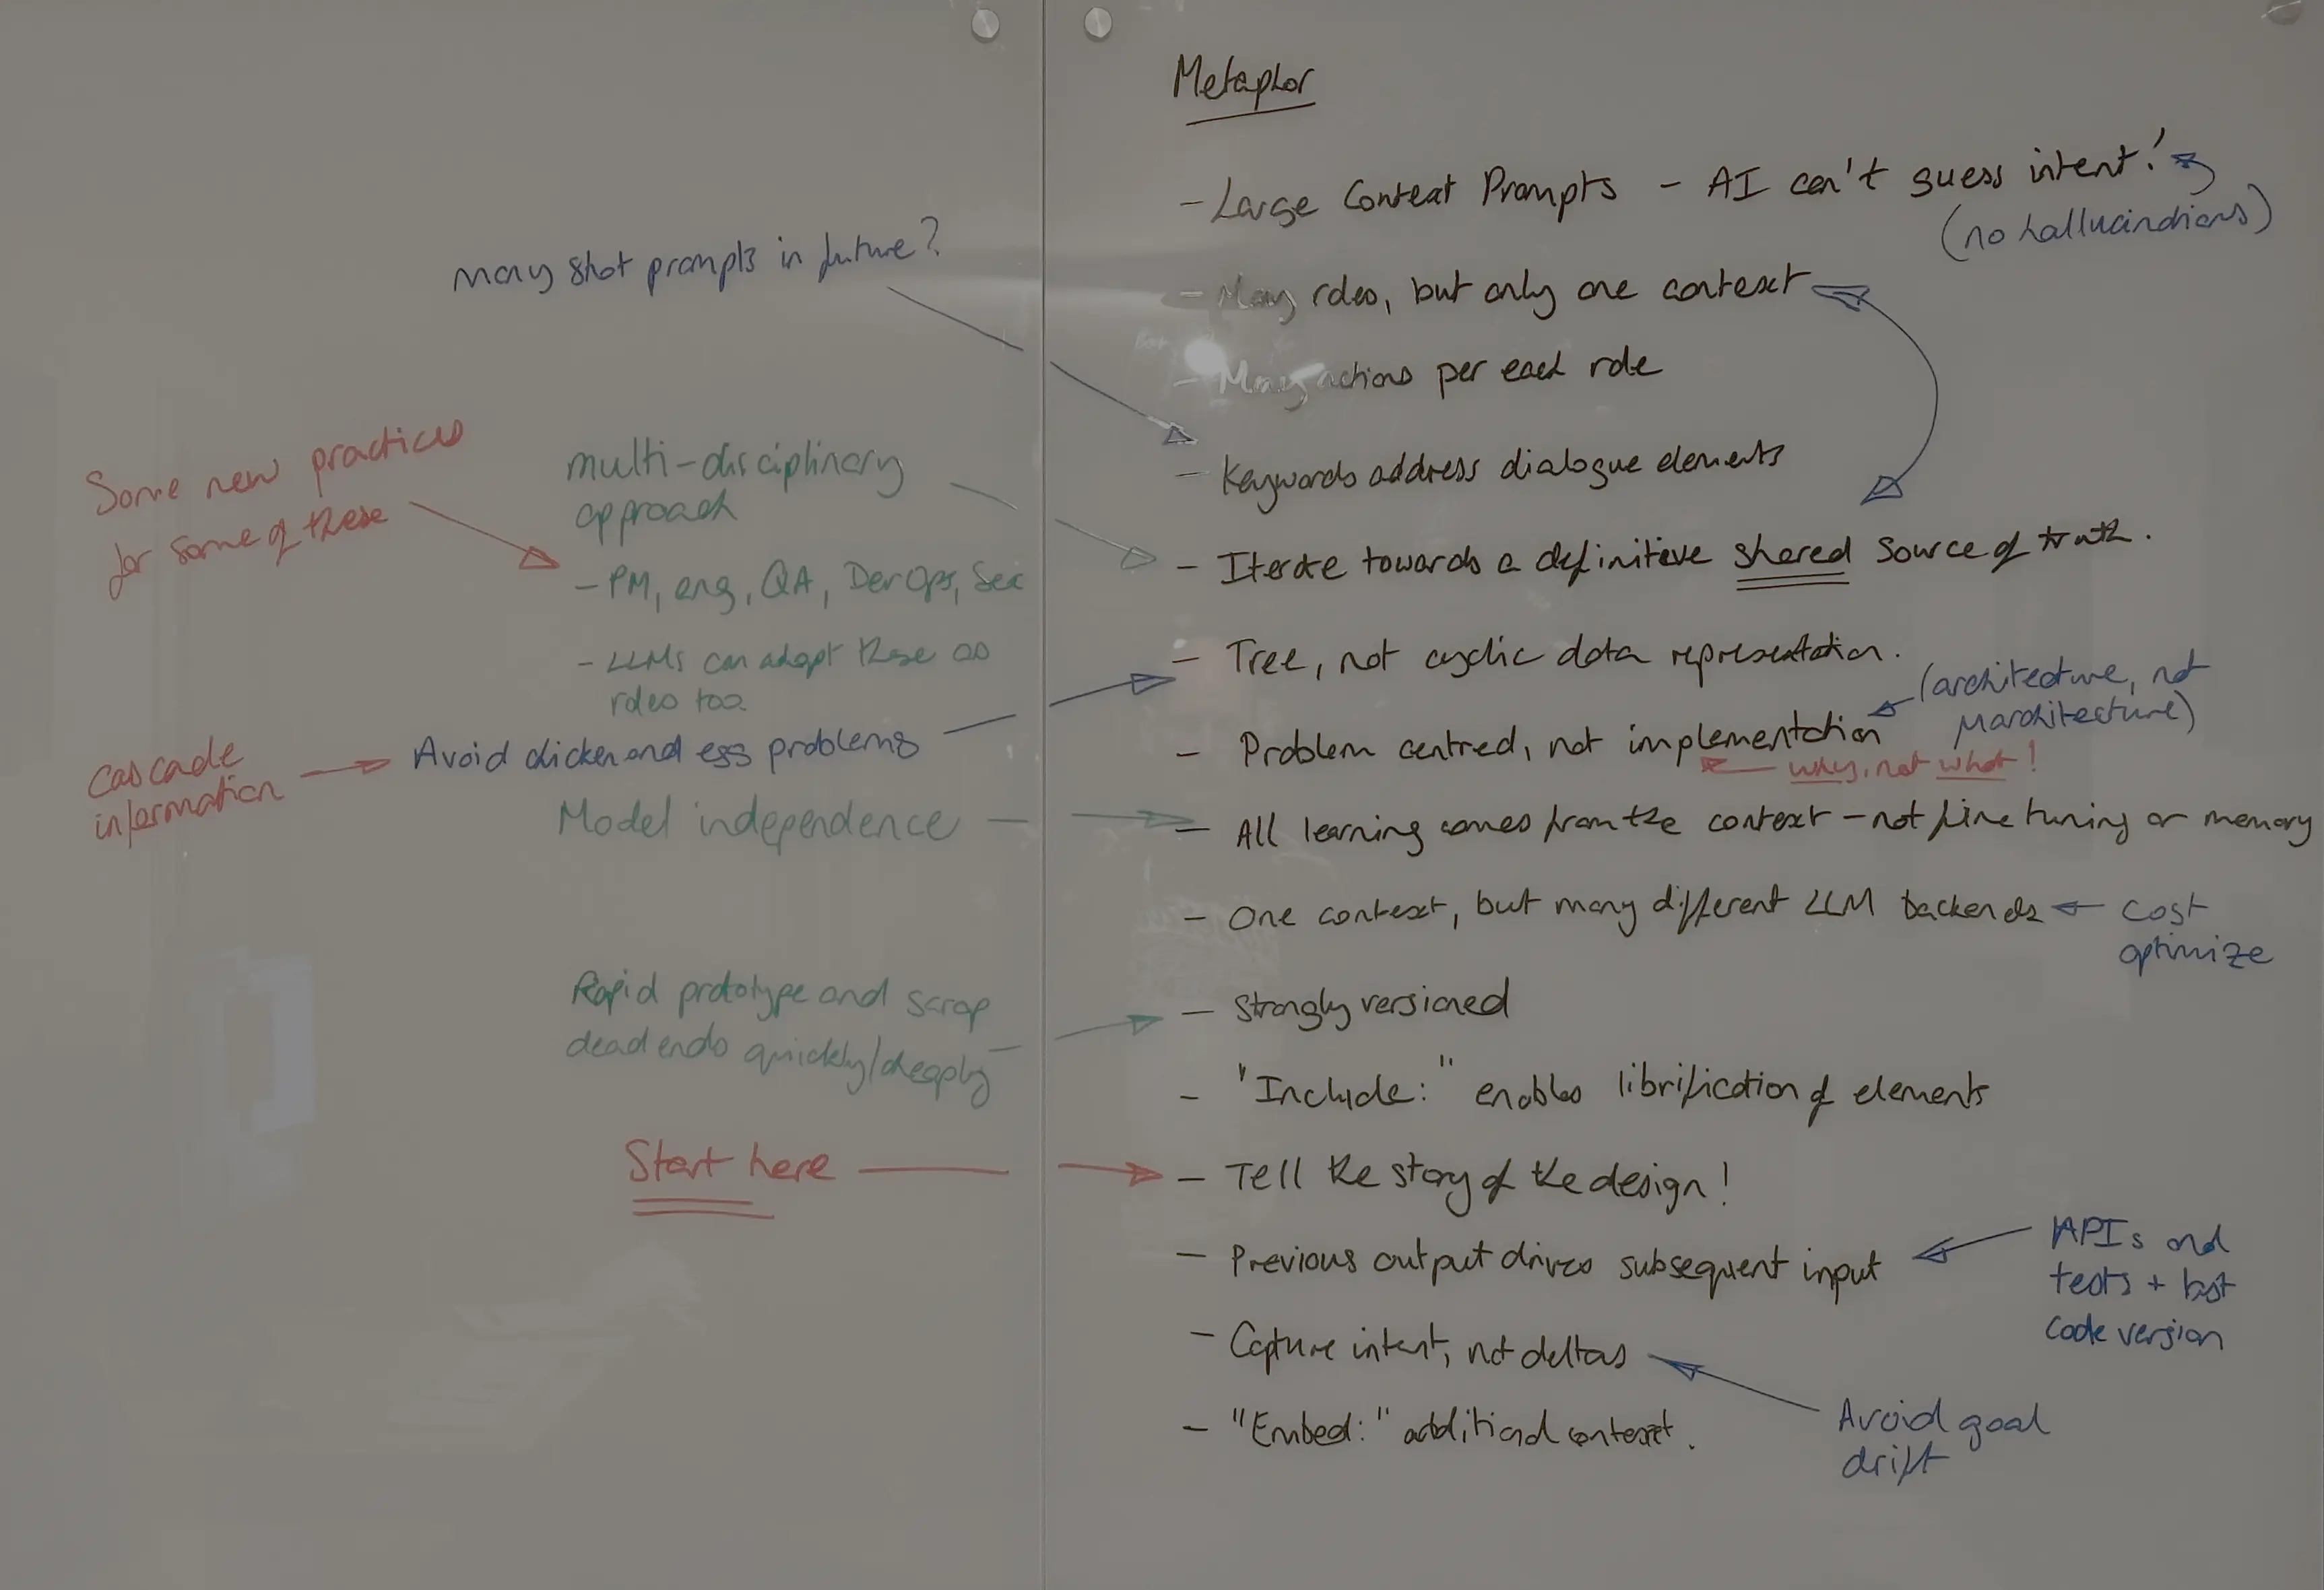 Metaphor
- Large Context Prompts - AI can't guess intent!
(no hallucinations)
- Many roles, but only one context
- Many actions per each role
- Keywords address dialogue elements
- Iterate towards a definitive shared source of truth.
- Tree, not cyclic data representation.
- Problem centred, not implementation
(architecture, not
marchitecture)
why, not what!
- All learning comes from the context - not fine tuning or memory
- One context, but many different LLM backends
cost
optimize
- Strongly versioned
- "Include:" enables librification of elements
- Tell the story of the design!
- Previous output drives subsequent input
APIs and
tests + last
code version
- Capture intent, not deltas
Avoid goal
drift
- "Embed:" additional context.
many shot prompts in future?
Some new practices
for some of these
multi-disciplinary
approach
- PM, eng, QA, DevOps, Sec
- LLMs can adopt these as
roles too.
Cascade
information
Avoid chicken and egg problems
Model independence
Rapid prototype and scrap
dead ends quickly/cheaply
Start here